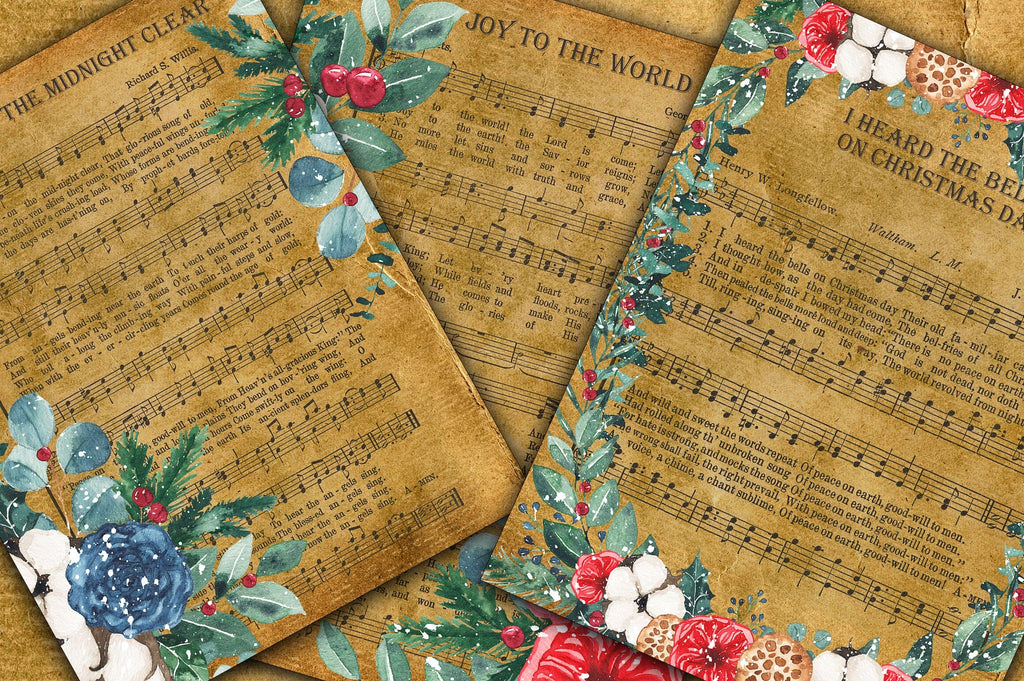 THE MIDNIGHT CLEAR
Richard S. Willis.
on the mid-night clear, That glorious song of old,
clo-ven skies they come, With peace-ful wings un-
neath life's crush-ing load, Whose forms are bend-ing
the days are has-t'ning on, By proph-et bards fore-
From an-gels bend-ing near the earth To touch their harps of gold;
And still their heav'n-ly mu-sic floats O'er all the wear-y world;
Who toil a-long the climb-ing way With pain-ful steps and slow,
When with the ev-er-cir-cling years Comes round the age of gold;
good-will to men, From Heav'n's all-gracious King" The
plains They bend on hov'ring wing, And
hours Come swift-ly on the wing; O
earth Its an-cient splen-dors fling, And
To hear the an-gels sing.
The blessed an-gels sing.
hear the an-gels sing.
now the an-gels sing. A-MEN
JOY TO THE WORLD
Geor
Joy to the world! the Lord is come;
to the earth! the Sav-ior reigns;
No more let sins and sor-rows grow,
rules the world with truth and grace,
King; Let ev-'ry heart pre
While fields and floods, rocks
He comes to make His
The glo-ries of His
I HEARD THE BEL
ON CHRISTMAS DA
Henry W. Longfellow.
Waltham. L. M.
J.
1. I heard the bells on Christmas day Their old fa-mil-iar ca
2. I thought how, as the day had come, The bel-fries of all Chr
3. And in de-spair I bowed my head: "There is no peace on earth
4. Then pealed the bells more loud and deep: "God is not dead, nor doth
Till, ring-ing, sing-ing on its way, The world revolved from night
And wild and sweet the words repeat Of peace on earth, good-will to men.
Had rolled along th' unbroken song Of peace on earth, good-will to men.
For hate is strong, and mocks the song Of peace on earth, good-will to men."
wrong shall fail, the right prevail, With peace on earth, good-will to men."
voice, a chime, a chant sublime, Of peace on earth, good-will to men! A-MEN